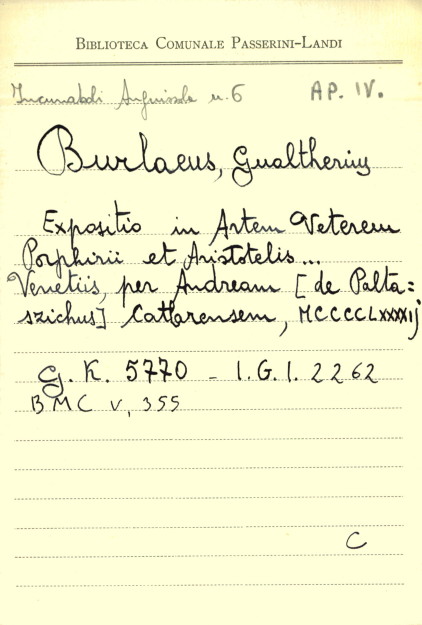 BIBLIOTECA COMUNALE PASSERINI-LANDI
Incunaboli Anguissola n. 6 AP. IV.
Burlaeus, Gualtherius
Expositio in Artem Veterem
Porphirii et Aristotelis ...
Venetiis, per Andream [de Palta=
szichus] Catharensem, MCCCCLXXXXIJ
G. K. 5770 - I.G.I. 2262
BMC V, 355
C